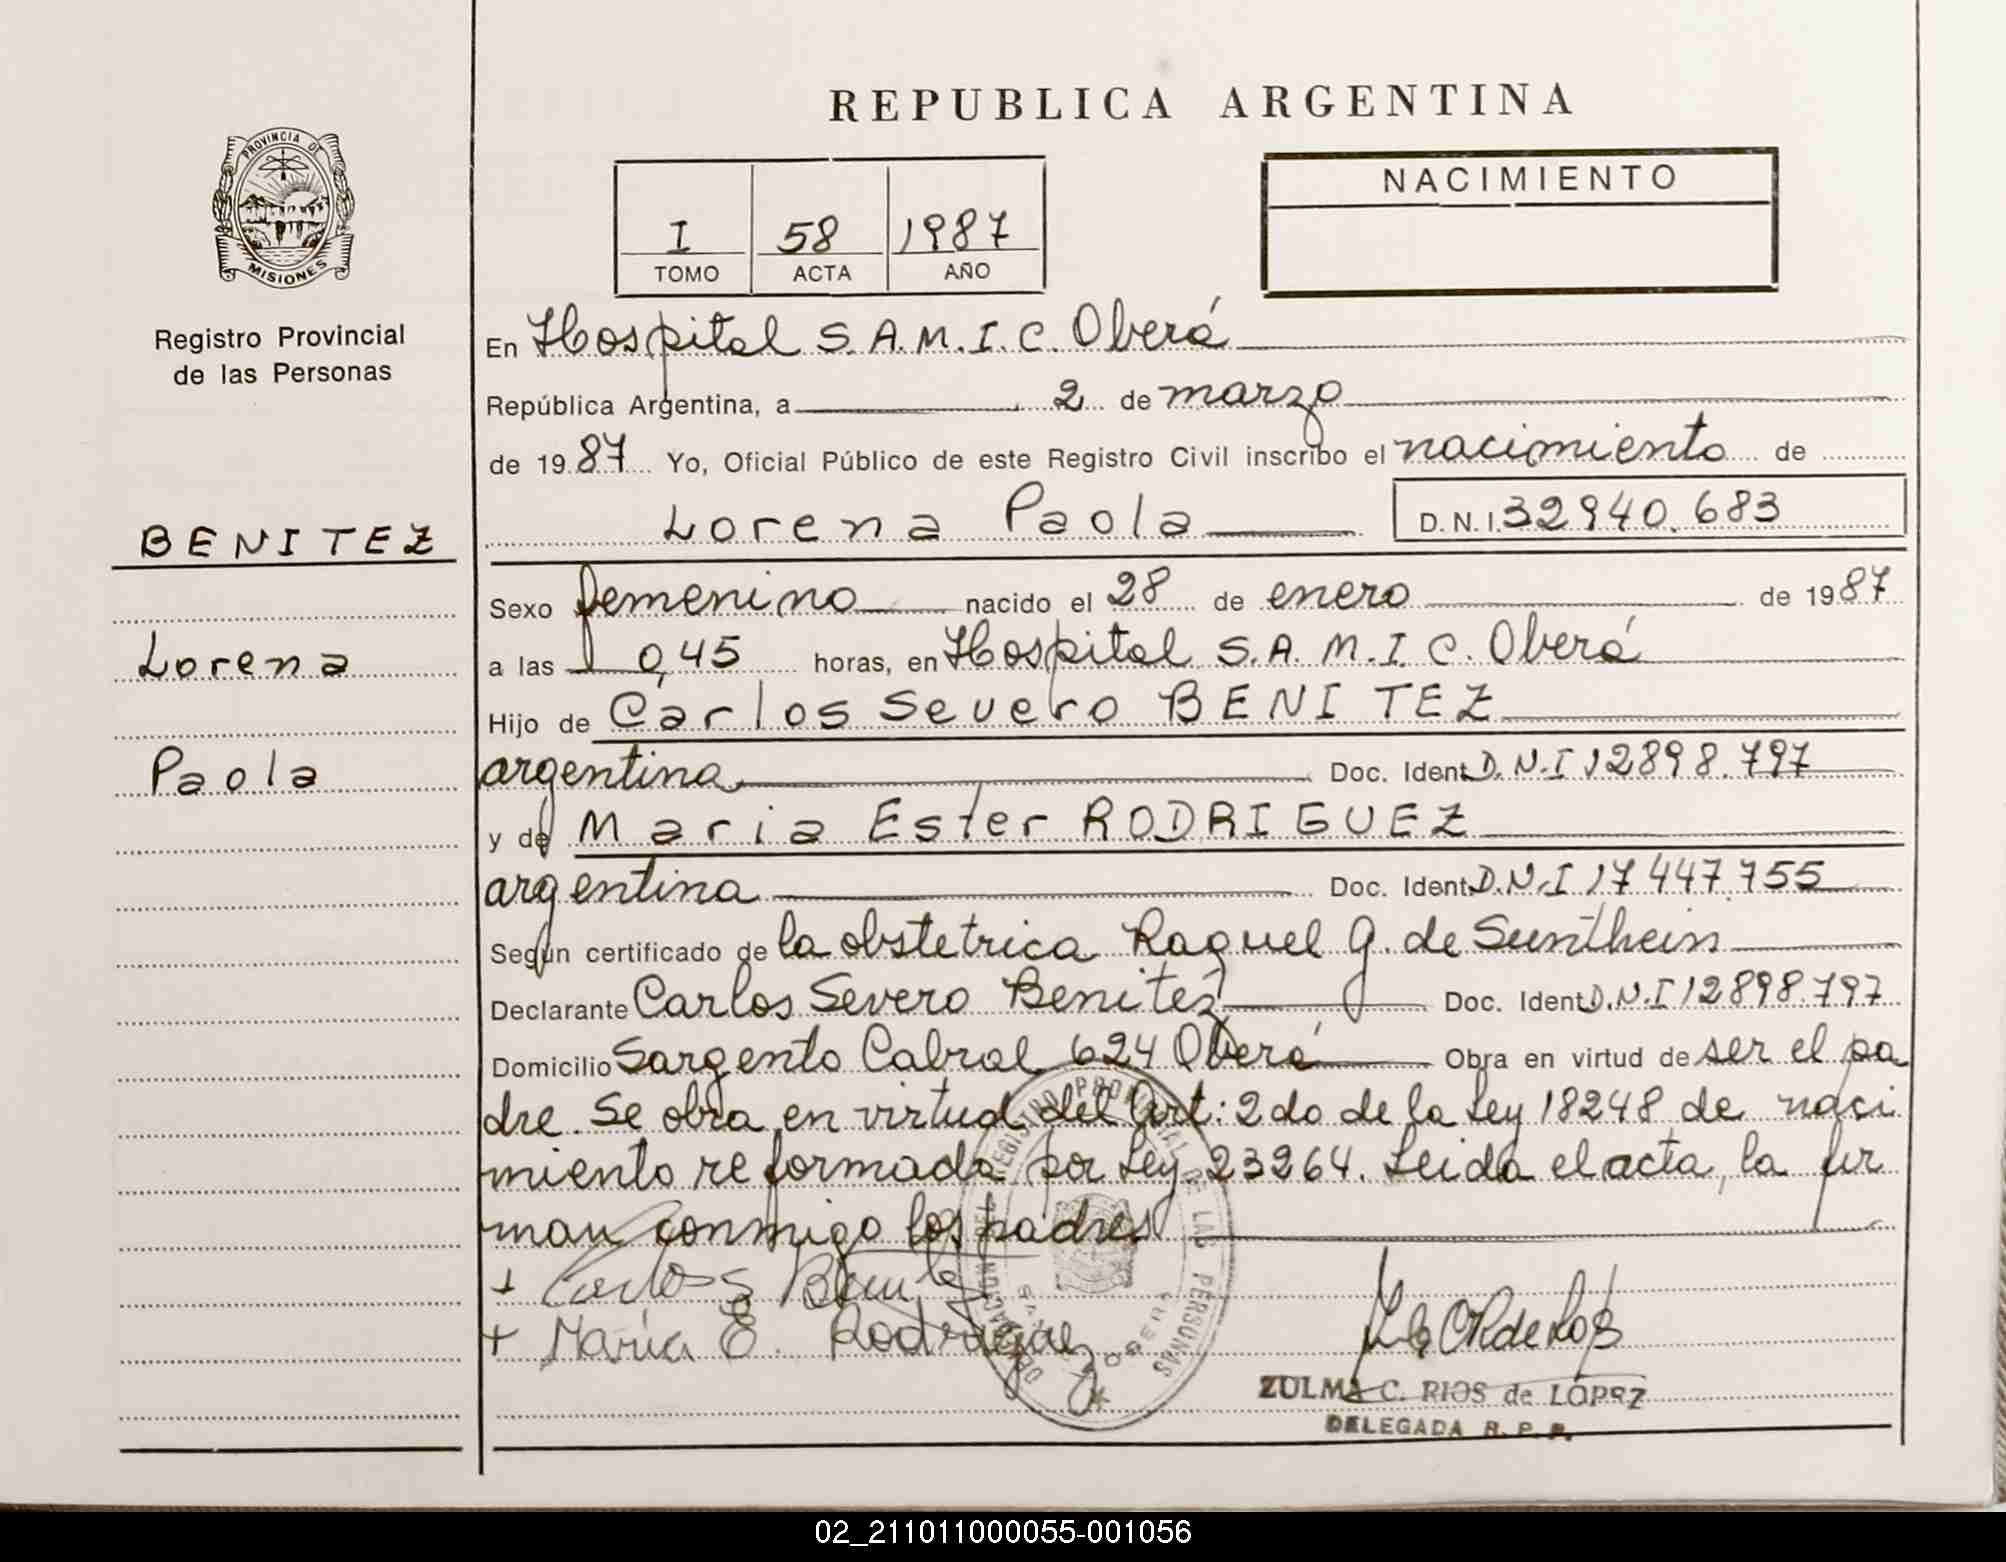 REPUBLICA ARGENTINA
PROVINCIA DE
MISIONES
Registro Provincial
de las Personas
BENITEZ
Lorena
Paola
I 58 1987
TOMO ACTA AÑO
NACIMIENTO
En Hospital S.A.M.I.C. Oberá
República Argentina, a 2 de marzo
de 1987 Yo, Oficial Público de este Registro Civil inscribo el nacimiento de
Lorena Paola D.N.I. 32940.683
Sexo femenino nacido el 28 de enero de 1987
a las 0,45 horas, en Hospital S.A.M.I.C. Oberá
Hijo de Carlos Severo BENITEZ
argentina Doc. Ident. D.N.I 12898.797
y de Maria Ester RODRIGUEZ
argentina Doc. Ident. D.N.I 17447.755
Según certificado de la obstetrica Raquel G. de Sunthein
Declarante Carlos Severo Benitez Doc. Ident. D.N.I 12898.797
Domicilio Sargento Cabral 624 Oberá Obra en virtud de ser el pa
dre. Se obra en virtud del Art: 2do de la Ley 18248 de naci
miento reformada por Ley 23264. Leida el acta, la fir
man conmigo los padres
+ Carlos Benitez
+ María E. Rodriguez
REGISTRO PROVINCIAL DE LAS PERSONAS
ZULMA C. RIOS de LÓPEZ
DELEGADA R. P. P.
02_211011000055-001056